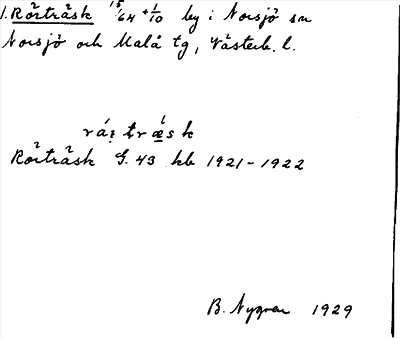 1. Rörträsk 15/64 + 1/10 by i Norsjö sn
Norsjö och Malå tg, Västerb. l.
Rörträsk G. 43 kb 1921-1922
B. Nygren 1929